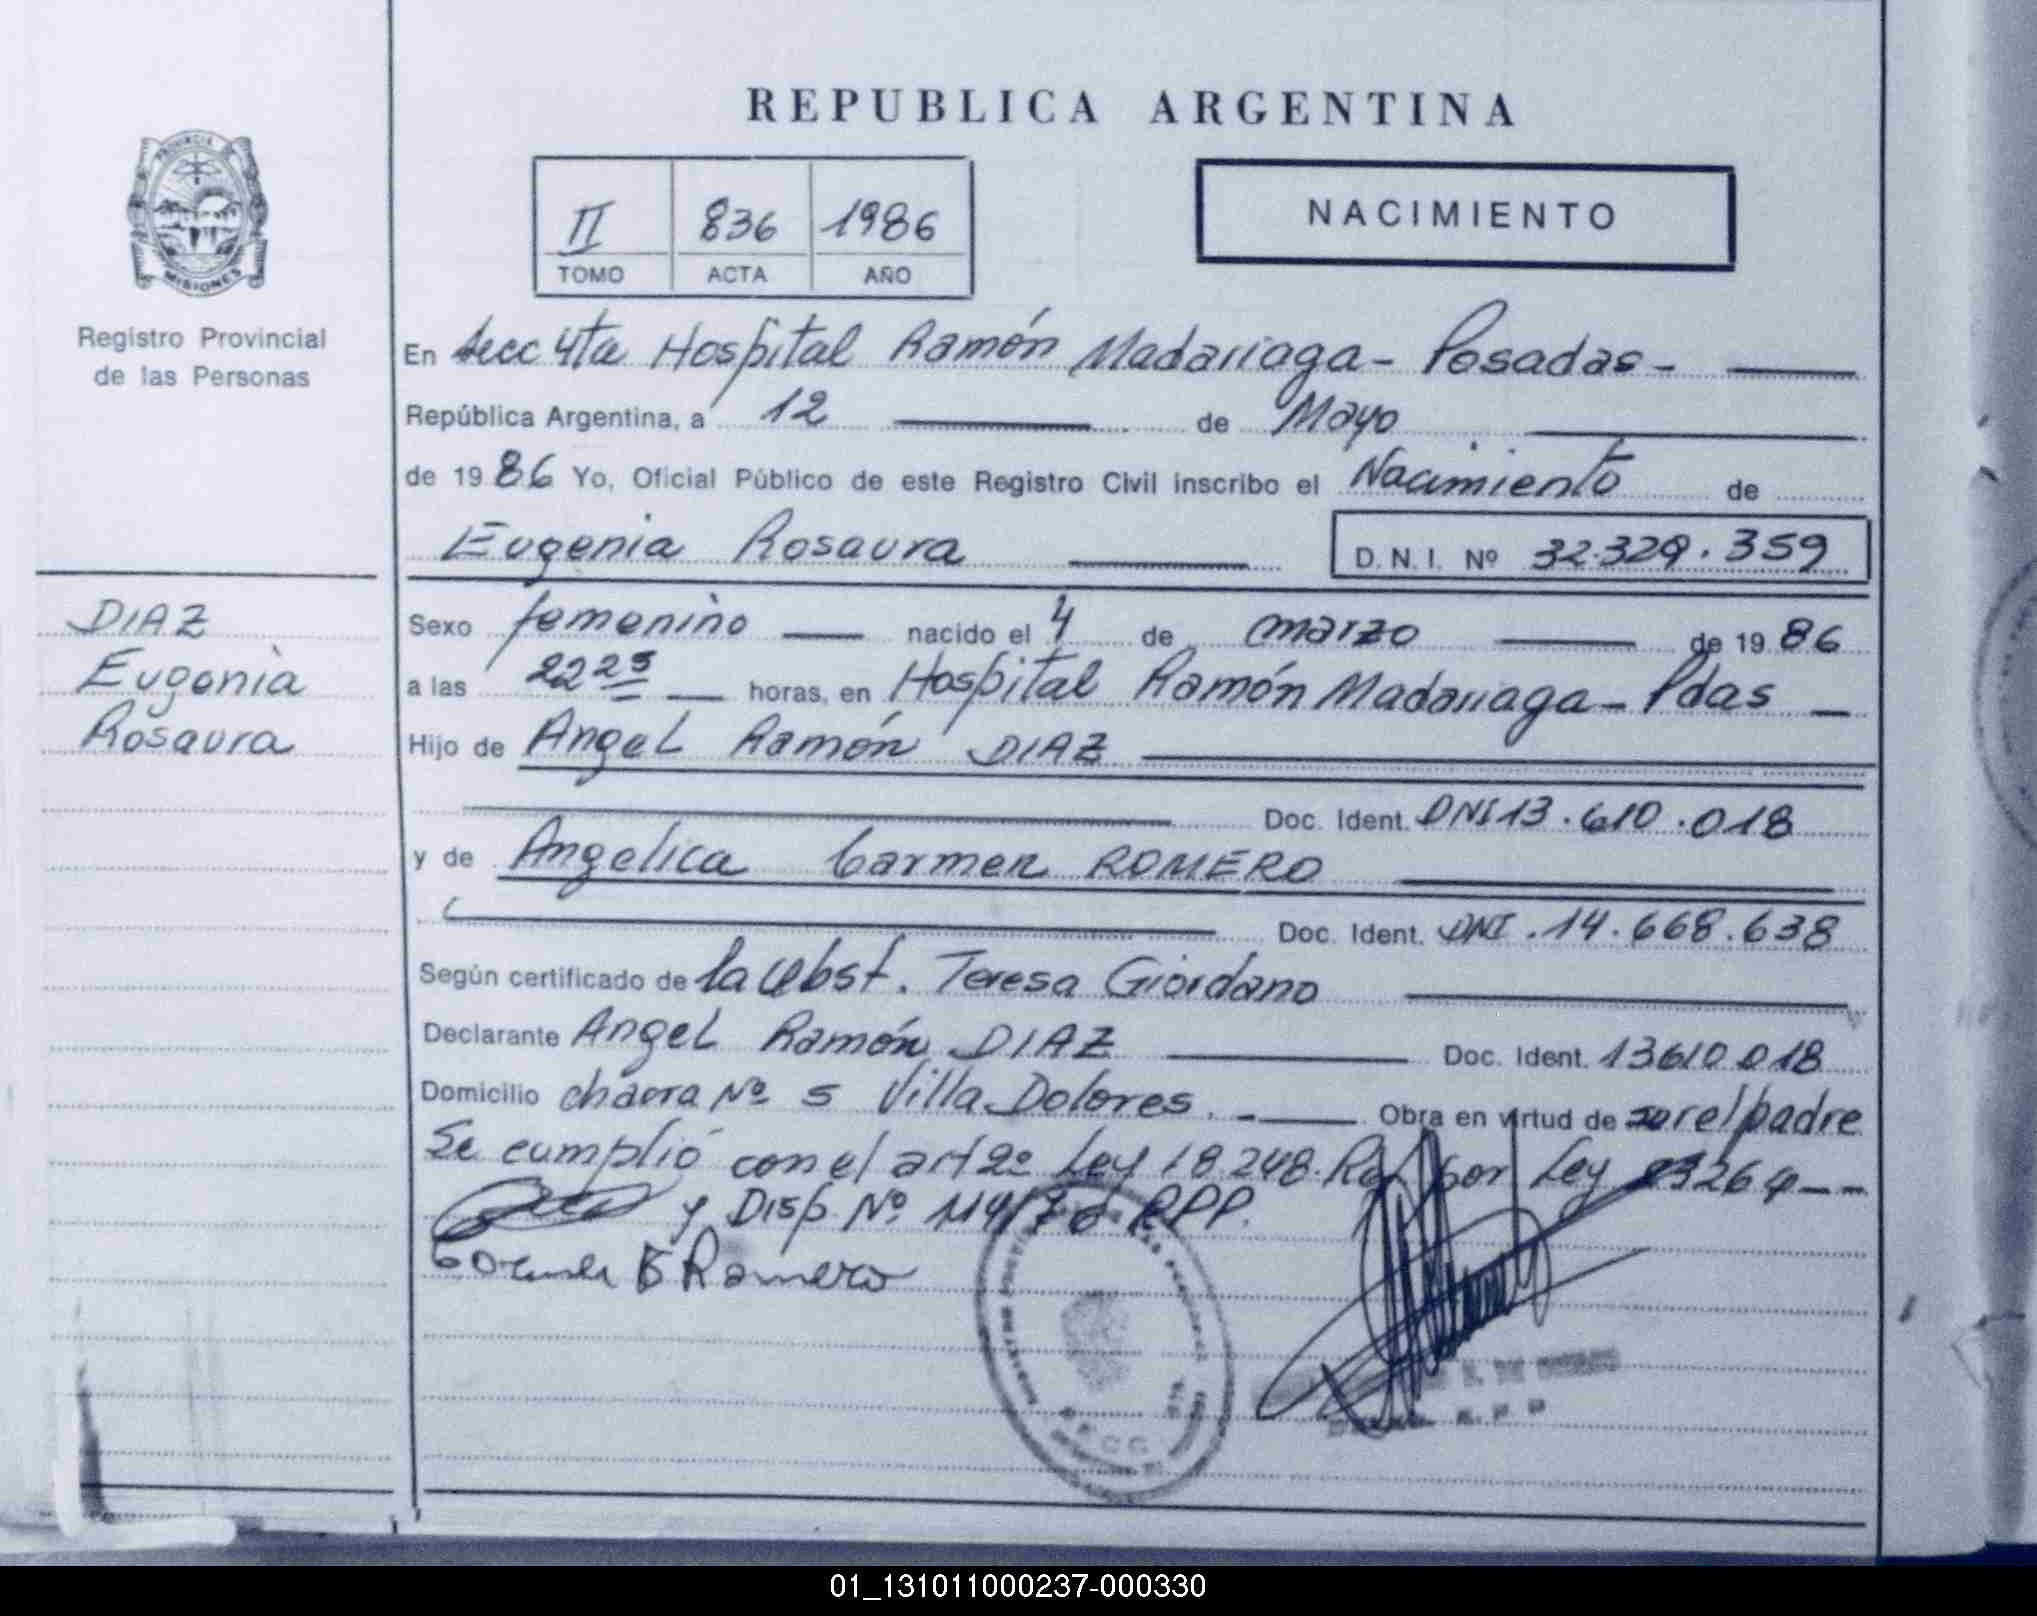 REPUBLICA ARGENTINA
PROVINCIA DE
MISIONES
Registro Provincial
de las Personas
II 836 1986
TOMO ACTA AÑO
NACIMIENTO
En Secc 4ta Hospital Ramón Madariaga - Posadas -
República Argentina, a 12 de Mayo
de 1986 Yo, Oficial Público de este Registro Civil inscribo el Nacimiento de
Eugenia Rosaura D.N.I. Nº 32.329.359
DIAZ
Eugenia
Rosaura
Sexo femenino nacido el 4 de marzo de 1986
a las 22 25 horas, en Hospital Ramón Madariaga - Pdas
Hijo de Angel Ramón DIAZ
Doc. Ident. DNI 13.610.018
y de Angelica Carmen ROMERO
Doc. Ident. DNI. 14.668.638
Según certificado de la Obst. Teresa Giordano
Declarante Angel Ramón DIAZ Doc. Ident. 13610018
Domicilio chacra Nº 5 Villa Dolores. Obra en virtud de ser el padre
Se cumplió con el art 2º Ley 18.248. Ref por Ley 23264 --
y Disp. Nº 114/70 RPP.
Romero
R. P. P
01_131011000237-000330